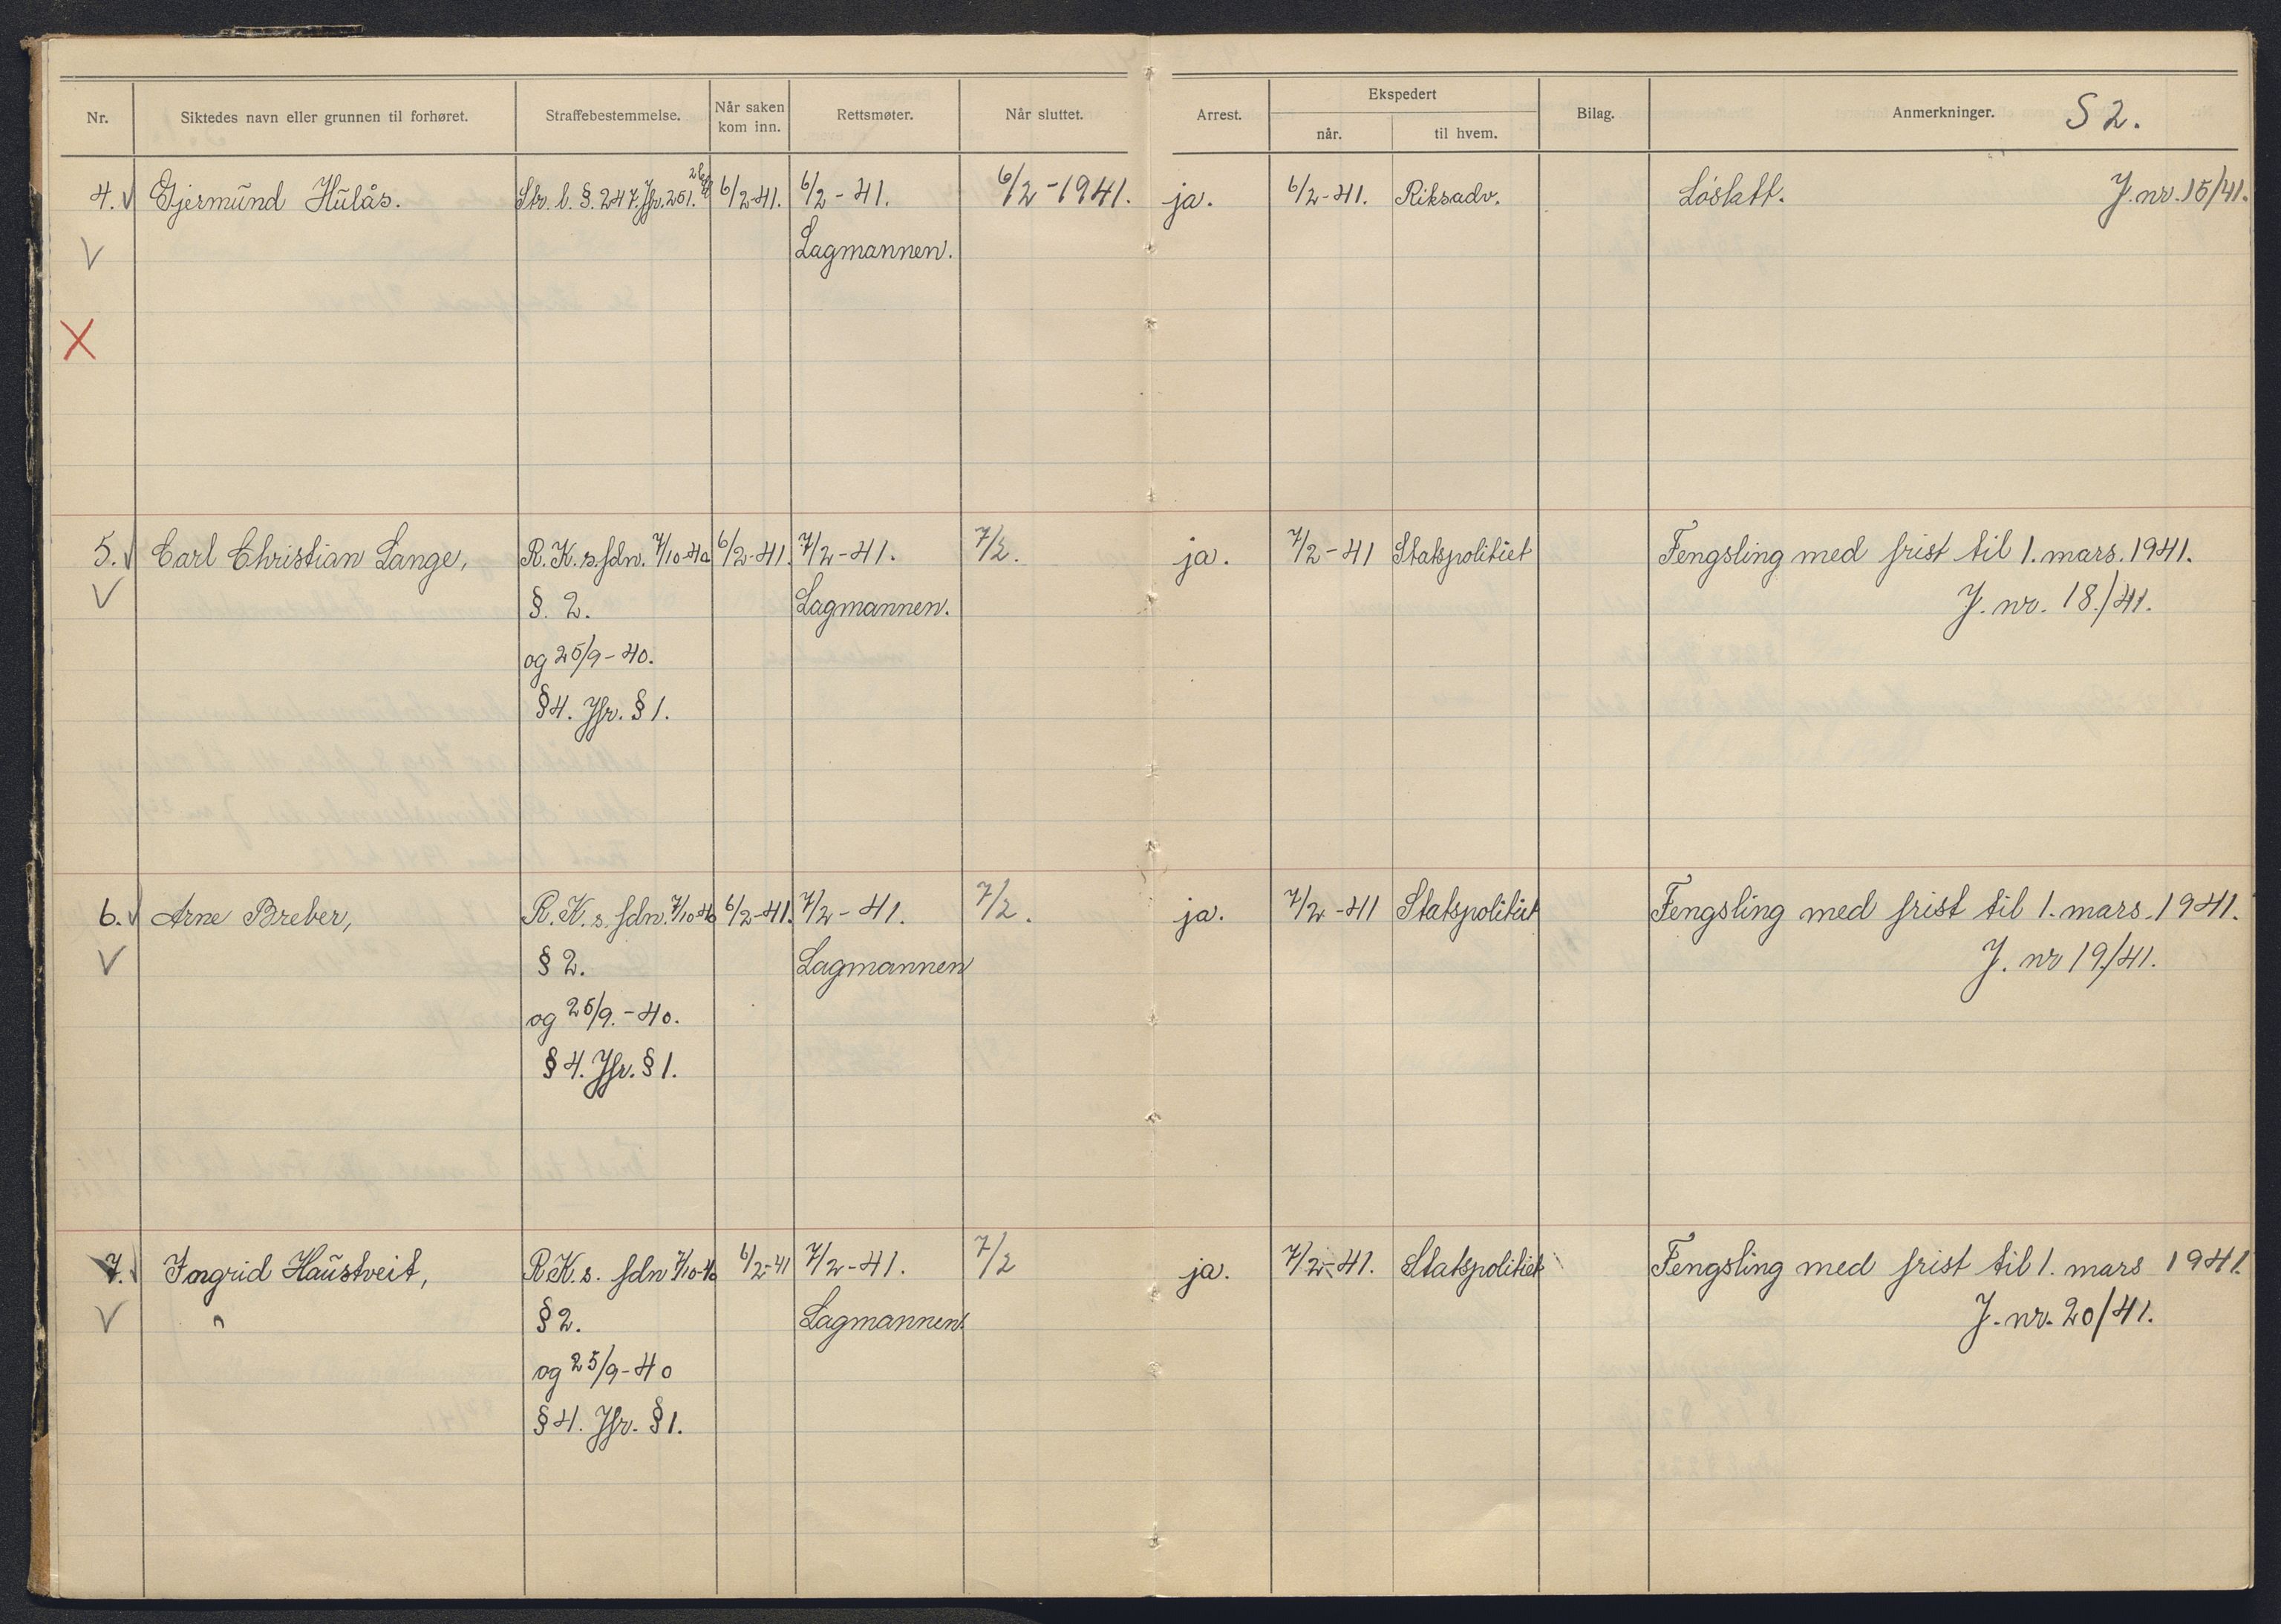 Nr. Siktedes navn eller grunnen til forhøret. Straffebestemmelse. Når saken kom inn. Rettsmøter. Når sluttet. Arrest. Ekspedert når. til hvem. Bilag. Anmerkninger. S 2.
4. Gjermund Hulås. Str. l. §. 247. Jfr. 251. 6/2-41. 6/2-41. 6/2-1941. ja. 6/2-41. Riksadv. Löslatt. J. nr. 15/41.
Lagmannen.
5. Carl Christian Lange, R. K. s. fdn. 7/10-40 6/2-41. 7/2-41. 7/2. ja. 7/2-41 Statspolitiet Fengsling med frist til 1. mars. 1941.
§. 2. Lagmannen. J. nr. 18./41.
og 25/9-40.
§4. Jfr. §1.
6. Arne Breber, R. K. s. fdn. 7/10-40 6/2-41. 7/2-41. 7/2. ja. 7/2-41 Statspolitiet Fengsling med frist til 1. mars. 1941.
§ 2. Lagmannen J. nr 19./41.
og 25/9.-40.
§ 4. Jfr. § 1.
7. Ingrid Haustveit, R.K. s. fdn 7/10-40 6/2-41 7/2-41. 7/2 ja. 7/2-41. Statspolitiet Fengsling med frist til 1. mars 1941.
§2. Lagmannen. J. nr. 20/41.
og 25/9-40
§4. Jfr. §1.